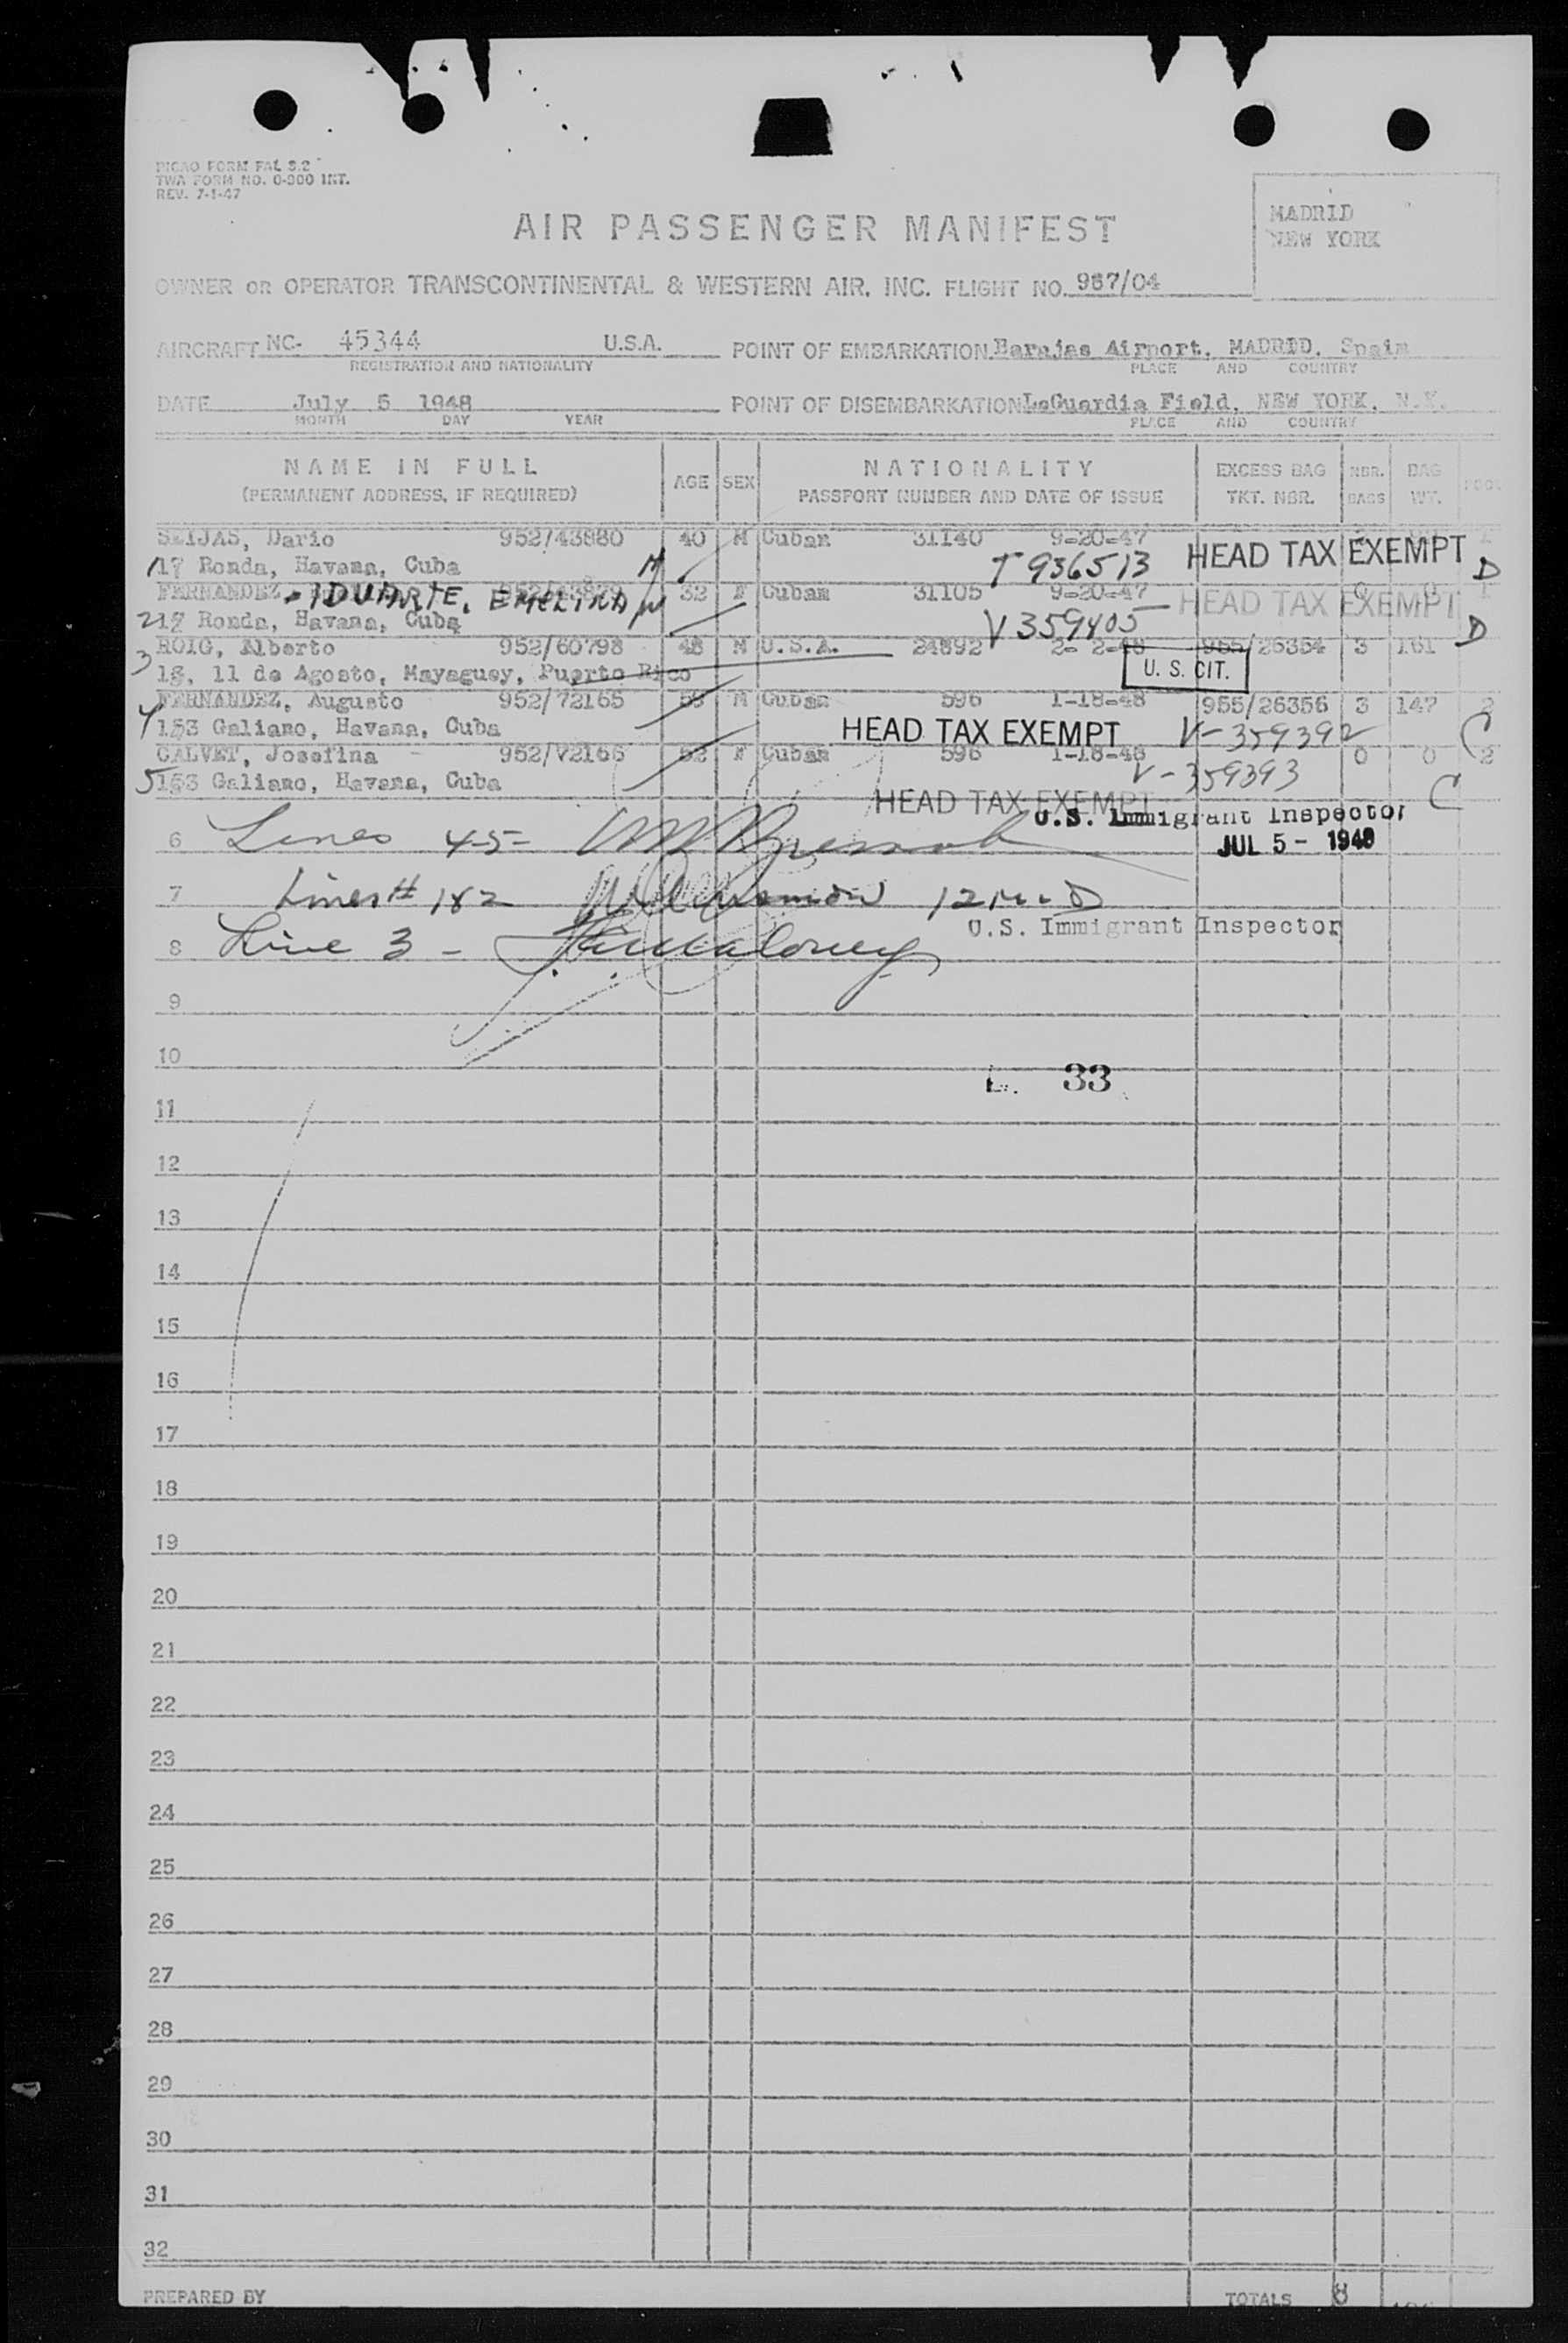 PICAO FORM FAL S.2
TWA FORM NO. 0-300 INT.
REV. 7-1-47
MADRID
NEW YORK
AIR PASSENGER MANIFEST
OWNER OR OPERATOR TRANSCONTINENTAL & WESTERN AIR, INC. FLIGHT NO. 967/04
AIRCRAFT NC- 45344 U.S.A. POINT OF EMBARKATION Barajas Airport, MADRID, Spain
REGISTRATION AND NATIONALITY PLACE AND COUNTRY
DATE July 5 1948 POINT OF DISEMBARKATION LaGuardia Field, NEW YORK, N.Y.
MONTH DAY YEAR PLACE AND COUNTRY
NAME IN FULL AGE SEX NATIONALITY EXCESS BAG NBR. BAG
(PERMANENT ADDRESS, IF REQUIRED) PASSPORT NUMBER AND DATE OF ISSUE TKT. NBR. BAGS WT.
SEIJAS, Dario 952/43880 40 M Cuban 31140 9-20-47
1 17 Ronda, Havana, Cuba M T 936513 HEAD TAX EXEMPT D
FERNANDEZ - IDUARTE, EMELINA 32 F Cuban 31105 9-20-47 0 0 1
2 17 Ronda, Havana, Cuba V 359405 HEAD TAX EXEMPT D
ROIG, Alberto 952/60798 48 M U.S.A. 24892 2- 2-48 955/26354 3 161
3 18, 11 de Agosto, Mayaguey, Puerto Rico U. S. CIT.
FERNANDEZ, Augusto 952/72165 53 M Cuban 596 1-18-48 955/26356 3 147 2
4 153 Galiano, Havana, Cuba HEAD TAX EXEMPT V-359392 C
CALVET, Josefina 952/72166 52 F Cuban 596 1-18-48 0 0 2
5 153 Galiano, Havana, Cuba V-359393
HEAD TAX EXEMPT C
U.S. Immigrant Inspector
6 Lines 4-5-
JUL 5 - 1948
7 Lines # 1&2
U.S. Immigrant Inspector
8 Line 3 -
9
10
33
11
12
13
14
15
16
17
18
19
20
21
22
23
24
25
26
27
28
29
30
31
32
PREPARED BY TOTALS 8